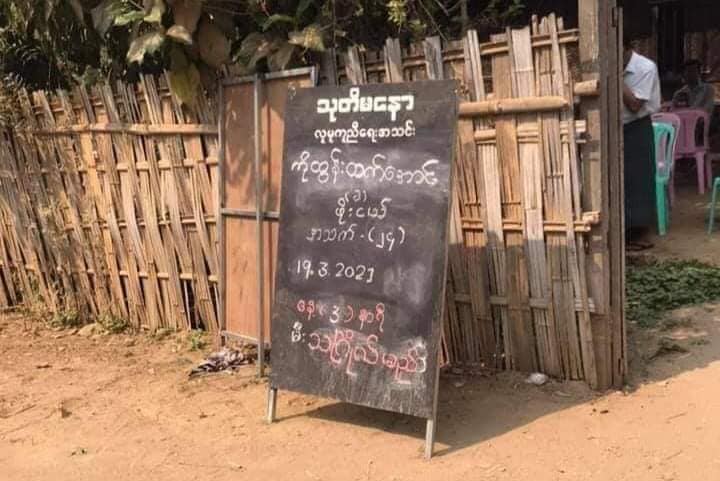 သုတိမနော
လူမှုကူညီရေးအသင်း
ကိုထွန်းထက်အောင်
(ခ)
ဖိုးဇော်
အသက် - (၂၄)
19.3.2021
နေ့ (၃) နာရီ
မီးသင်္ဂြိုလ်မည်။